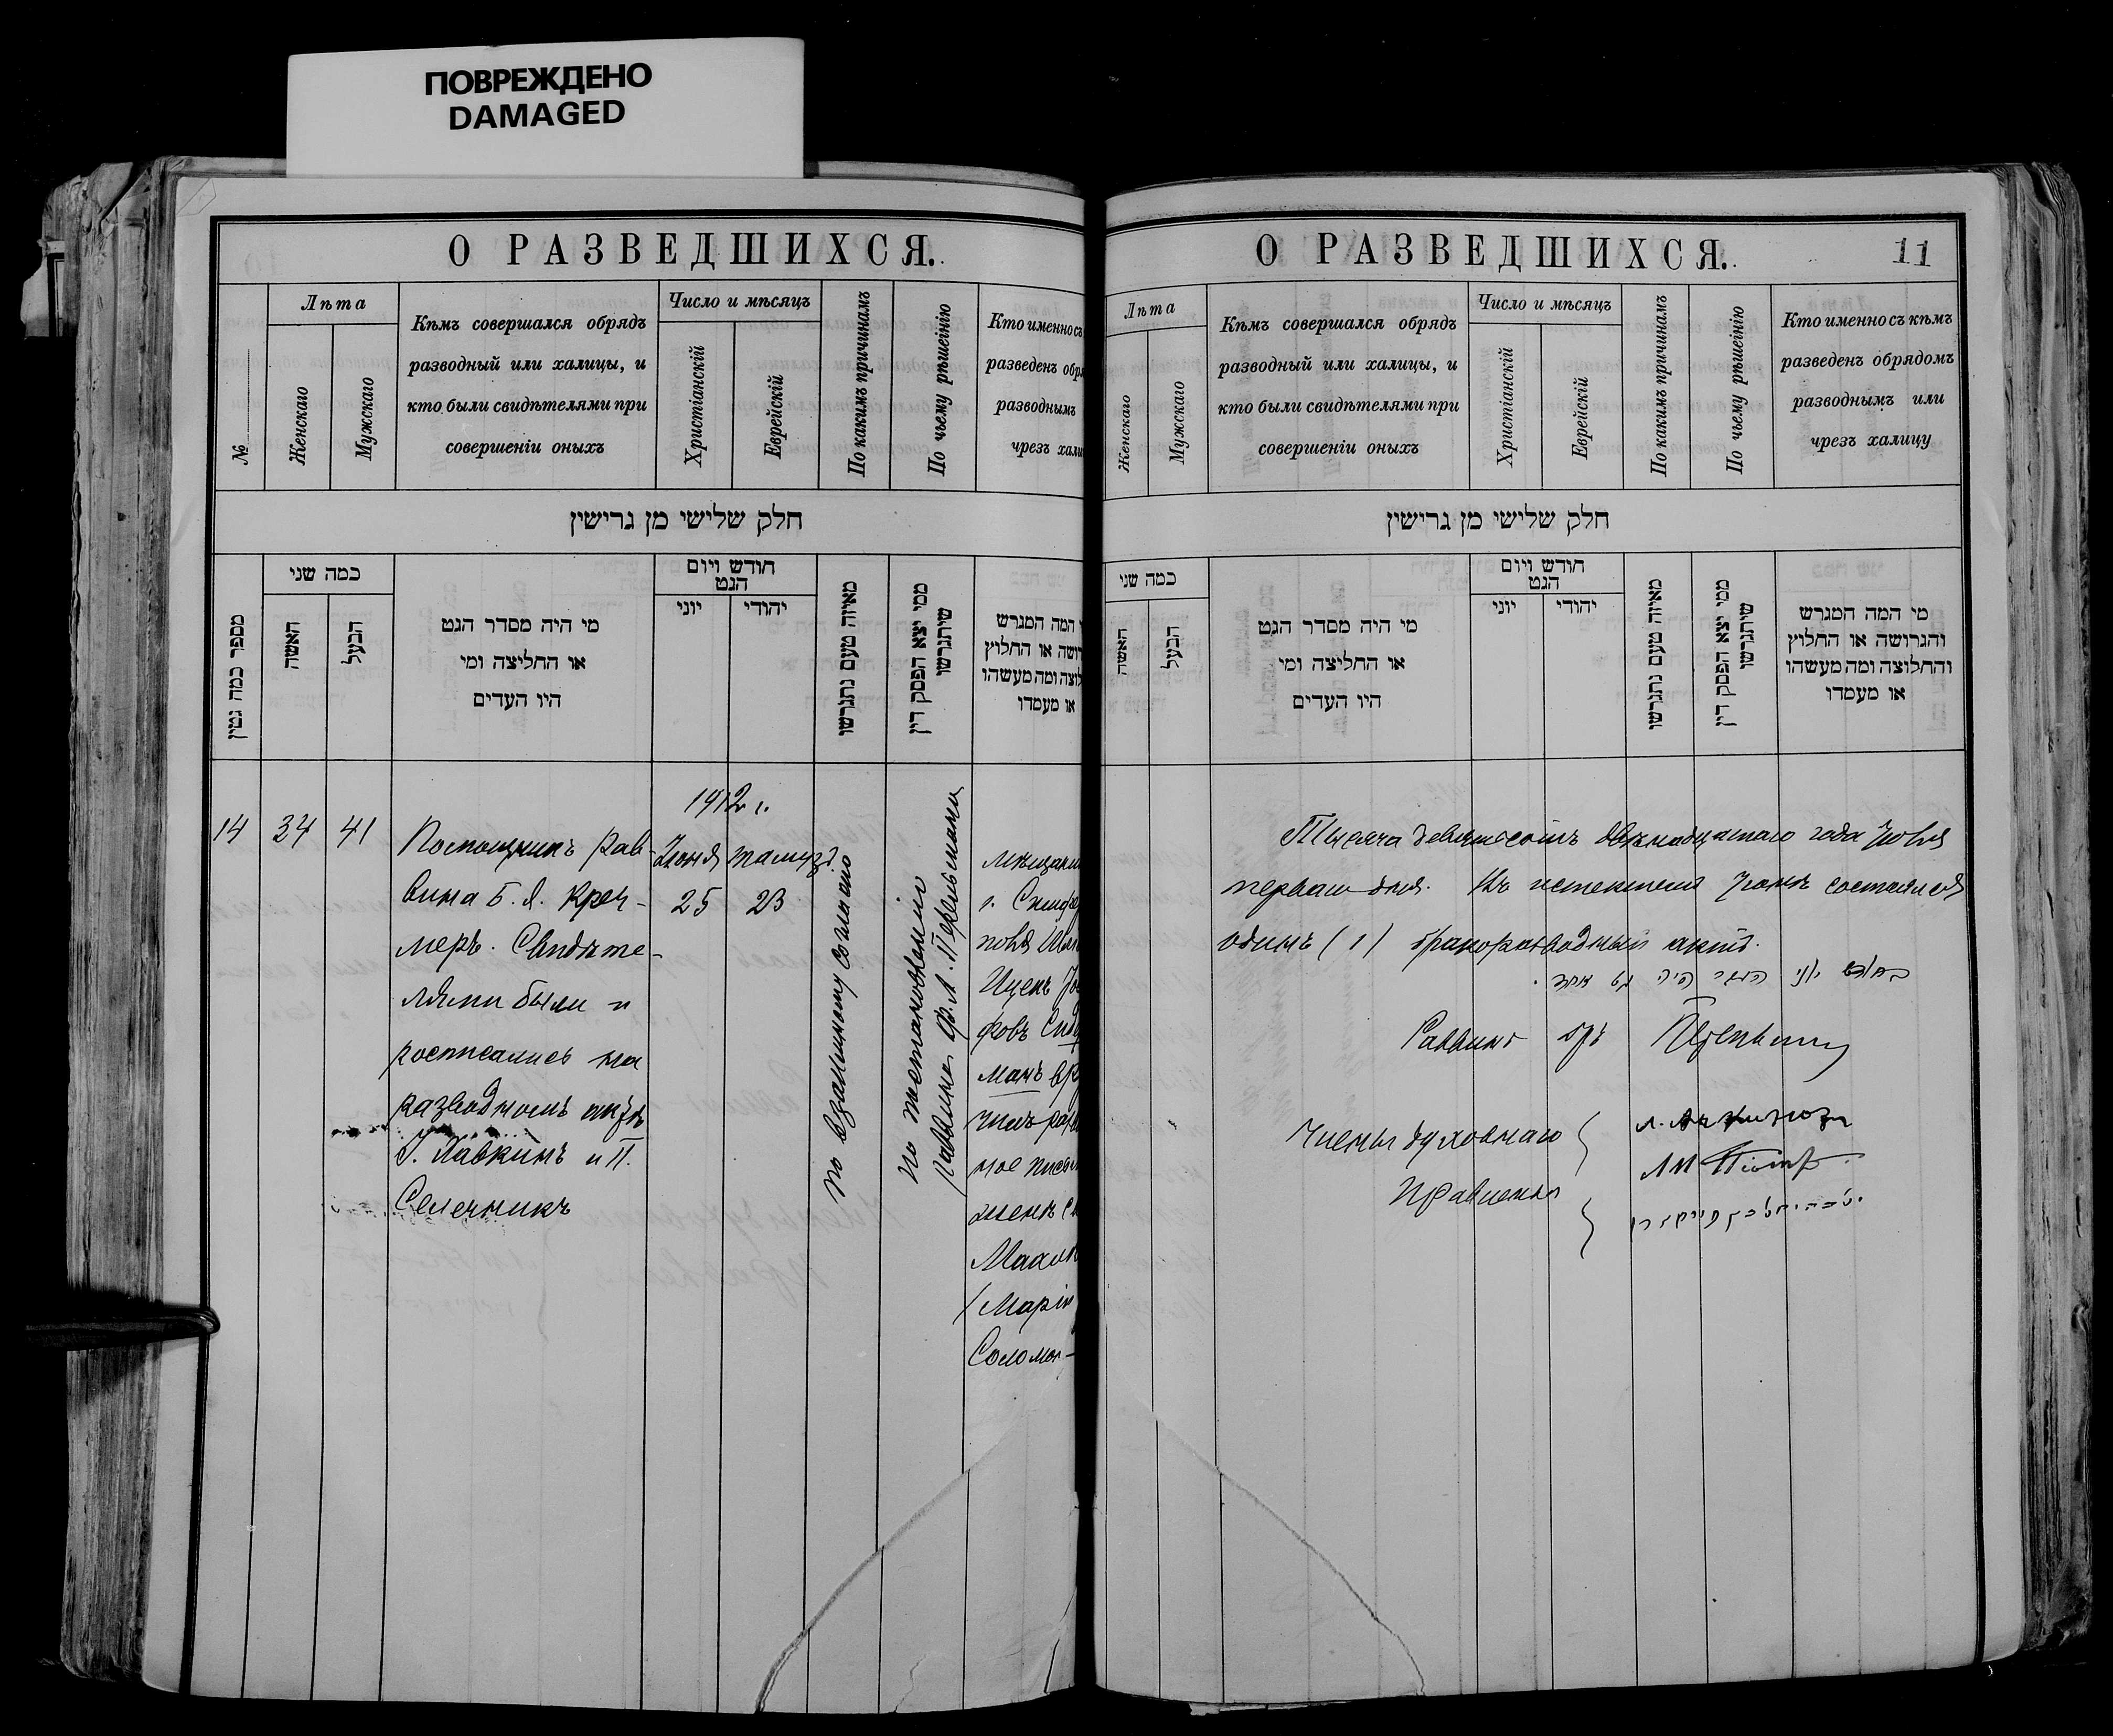 ПОВРЕЖДЕНО
DAMAGED
О РАЗВЕДШИХСЯ.
№
Лѣта
Женскаго
Мужскаго
Кѣмъ совершался обрядъ
разводный или халицы, и
кто были свидѣтелями при
совершеніи оныхъ
Число и мѣсяцъ
Христіанскій
Еврейскій
По какимъ причинамъ
По чьему рѣшеінію
Кто именно съ
разведенъ обря
разводнымъ
чрезъ хали
חלק שלישי מן גרישין
מספר כמה גטין
כמה שני
האשה
הבעל
מי היה מסדר הגט
או החליצה ומי
היו העדים
חודש ויום
הגט
יוני
יהודי
מאיזה טעם נתגרשו
ממי יצא הפסק דין
שיתגרשו
י המה המגרש
רושה או החלוץ
לוצה ומה מעשהו
או מעמדו
14
34
41
Помощникъ Рав-
вина Б. Я. Креч-
меръ. Свидѣте-
лями были и
росписались на
разводномъ актѣ
І. Лавкинъ и П.
Селечникъ
1912 г.
Іюня
Тамузъ
25
23
По взаимному согласію
По постановленію
раввина Ф. Л. Перельмана
мѣщани
г. Симфер
поля
Ицекъ Іос
фовъ
манъ вр
чилъ раз
ное письм
женѣ с
(Марія
Соломо-
О РАЗВЕДШИХСЯ.
11
Лѣта
Женскаго
Мужскаго
Кѣмъ совершался обрядъ
разводный или халицы, и
кто были свидѣтелями при
совершеніи оныхъ
Число и мѣсяцъ
Христіанскій
Еврейскій
По какимъ причинамъ
По чьему рѣшеінію
Кто именно съ кѣмъ
разведенъ обрядомъ
разводнымъ или
чрезъ халицу
חלק שלישי מן גרישין
כמה שני
האשה
הבעל
מי היה מסדר הגט
או החליצה ומי
היו העדים
חודש ויום
הגט
יוני
יהודי
מאיזה טעם נתגרשו
ממי יצא הפסק דין
שיתגרשו
מי המה המגרש
והגרושה או החלוץ
והחלוצה ומה מעשהו
או מעמדו
Тысяча девятьсотъ двѣнадцатаго года Іюля
перваго дня. Въ истекшемъ Іюнѣ состоялся
одинъ (1) бракоразводный актъ.
בחודש יוני העבר היה גט אחד.
Раввинъ
Члены духовнаго
Правленія